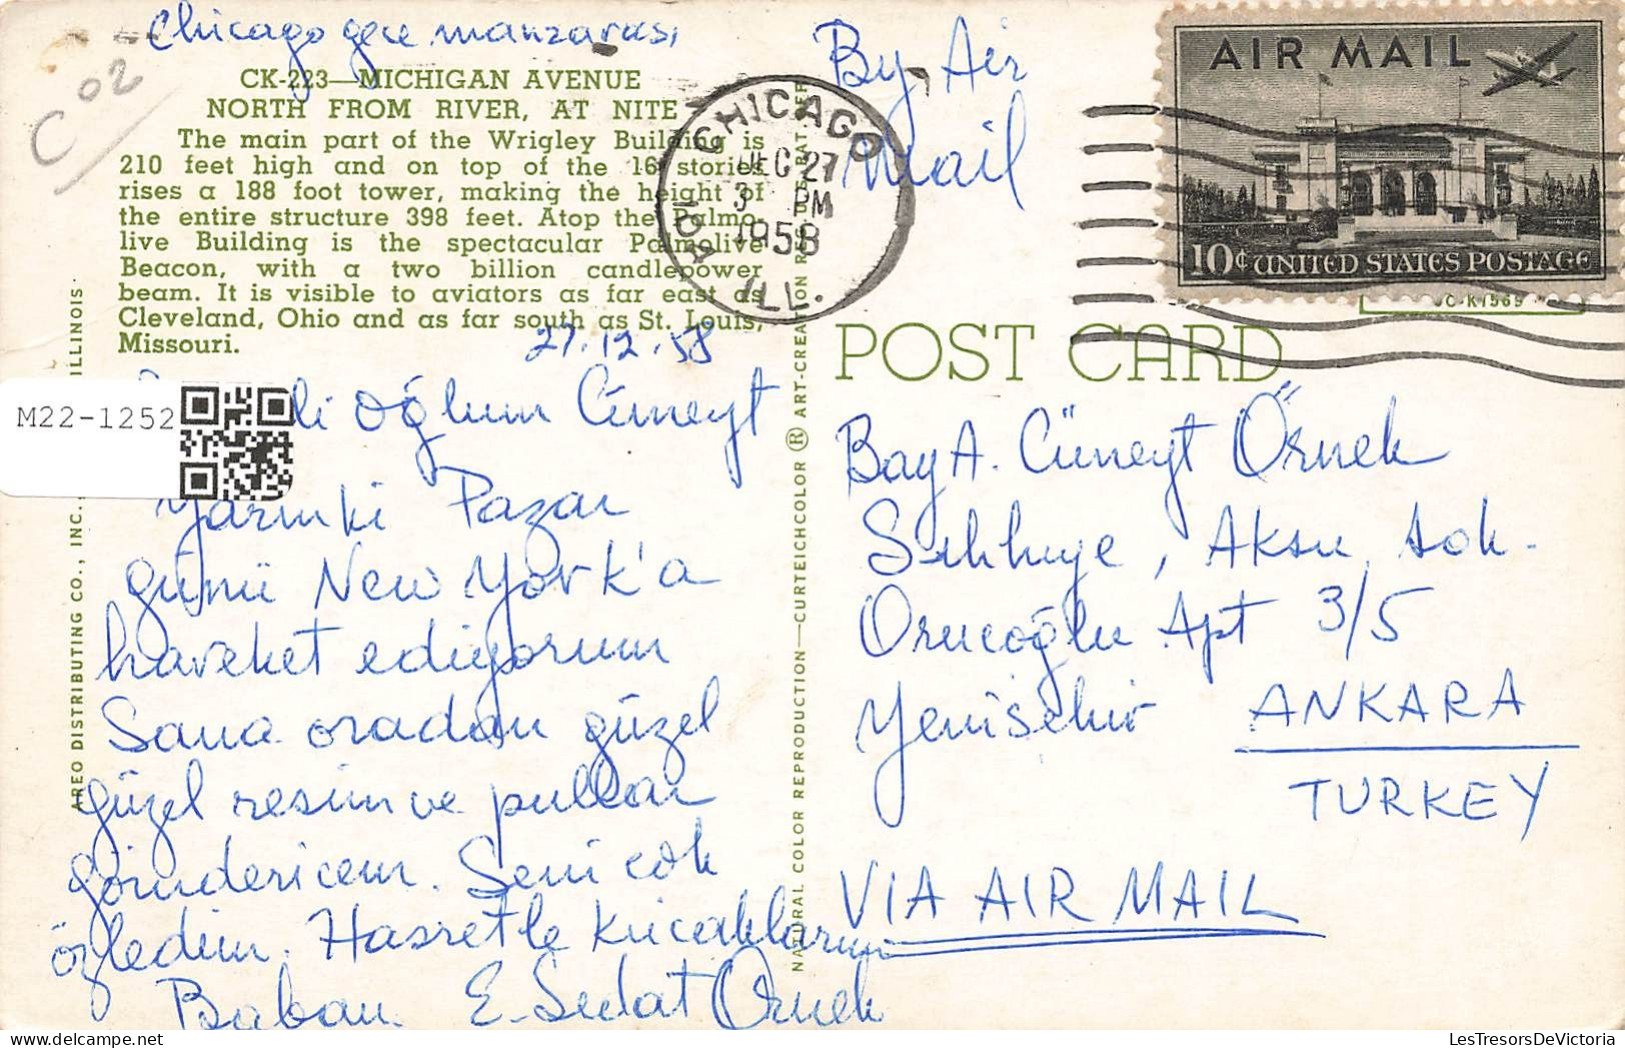 Chicago gece manzarası
C 02
CK-223—MICHIGAN AVENUE
NORTH FROM RIVER, AT NITE
The main part of the Wrigley Building is
210 feet high and on top of the 16 stories
rises a 188 foot tower, making the height of
the entire structure 398 feet. Atop the Palmo-
live Building is the spectacular Palmolive
Beacon, with a two billion candlepower
beam. It is visible to aviators as far east as
Cleveland, Ohio and as far south as St. Louis,
Missouri.
27.12.58
oğlum Cüneyt
Yarınki Pazar
günü New York'a
hareket ediyorum
Sana oradan güzel
güzel resim ve pullar
göndericem. Seni çok
özledim. Hasretle kucaklarım
Baban E. Sedat Örnek
AREO DISTRIBUTING CO., INC.
ILLINOIS
M22-1252
NATURAL COLOR REPRODUCTION—CURTEICHCOLOR ® ART-CREATION
CHICAGO
DEC 27
3 PM
1958
ILL.
By Air
Mail
AIR MAIL
10¢ UNITED STATES POSTAGE
C-K1569
POST CARD
Bay A. Cüneyt Örnek
Sıhhıye, Aksu sok.
Orucoğlu Apt 3/5
Yenişehir ANKARA
TURKEY
VIA AIR MAIL
LesTresorsDeVictoria